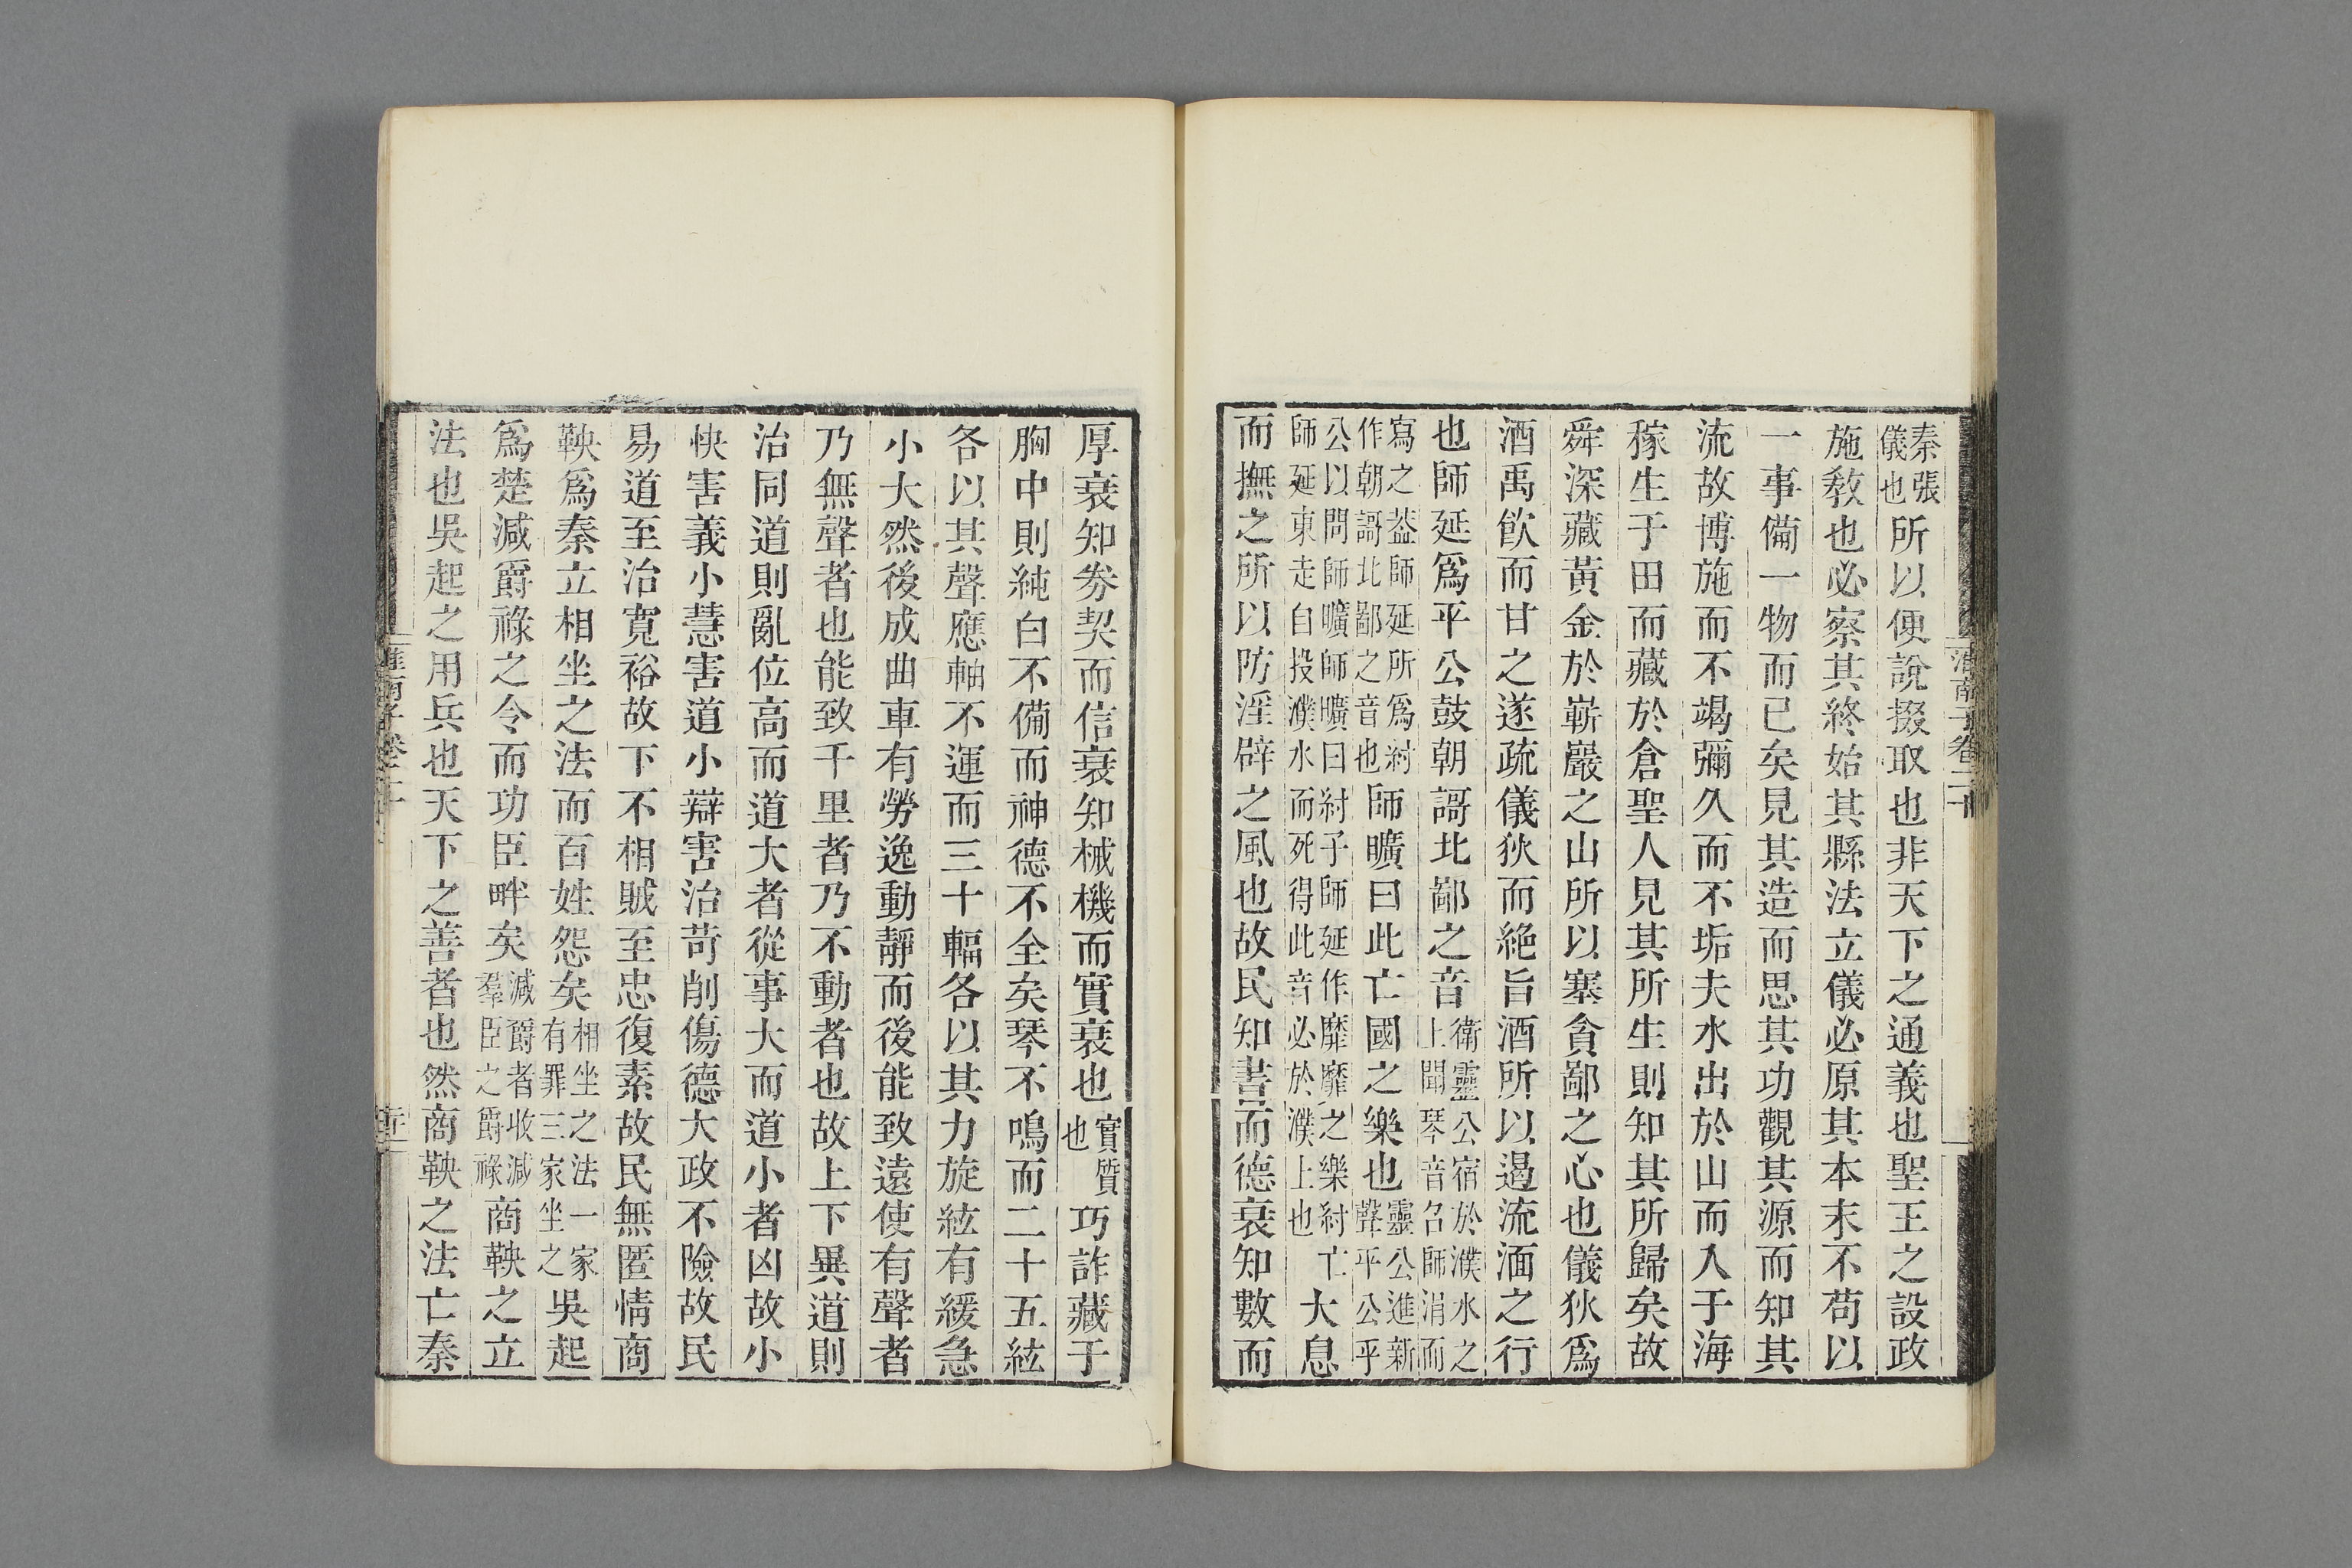 秦張儀也所以便說掇取也非天下之通義也聖王之設政
施敎也必察其終始其縣法立儀必原其本末不苟以
一事備一物而已矣見其造而思其功觀其源而知其
流故博施而不竭彌久而不垢夫水出於山而入于海
稼生于田而藏於倉聖人見其所生則知其所歸矣故
舜深藏黃金於嶄巖之山所以塞貪鄙之心也儀狄爲
酒禹飮而甘之遂疏儀狄而絶旨酒所以遏流湎之行
也師延爲平公鼓朝謌北鄙之音衛靈公宿於濮水之上聞琴音召師涓而
寫之葢師延所爲紂作朝謌北鄙之音也師曠曰此亡國之樂也靈公進新聲平公平
公以問師曠師曠曰紂子師延作靡靡之樂紂亡師延東走自投濮水而死得此音必於濮上也大息
而撫之所以防淫辟之風也故民知書而德衰知數而
淮南子卷二十
厚衰知券契而信衰知械機而實衰也實質也巧詐藏于
胸中則純白不備而神德不全矣琴不鳴而二十五絃
各以其聲應軸不運而三十輻各以其力旋絃有緩急
小大然後成曲車有勞逸動靜而後能致遠使有聲者
乃無聲者也能致千里者乃不動者也故上下異道則
治同道則亂位高而道大者從事大而道小者凶故小
快害義小慧害道小辯害治苛削傷德大政不險故民
易道至治寬裕故下不相賊至忠復素故民無匿情商
鞅爲秦立相坐之法而百姓怨矣相坐之法一家有罪三家坐之吳起
爲楚減爵祿之令而功臣畔矣減爵者收減羣臣之爵祿商鞅之立
法也吳起之用兵也天下之善者也然商鞅之法亡秦
淮南子卷二十